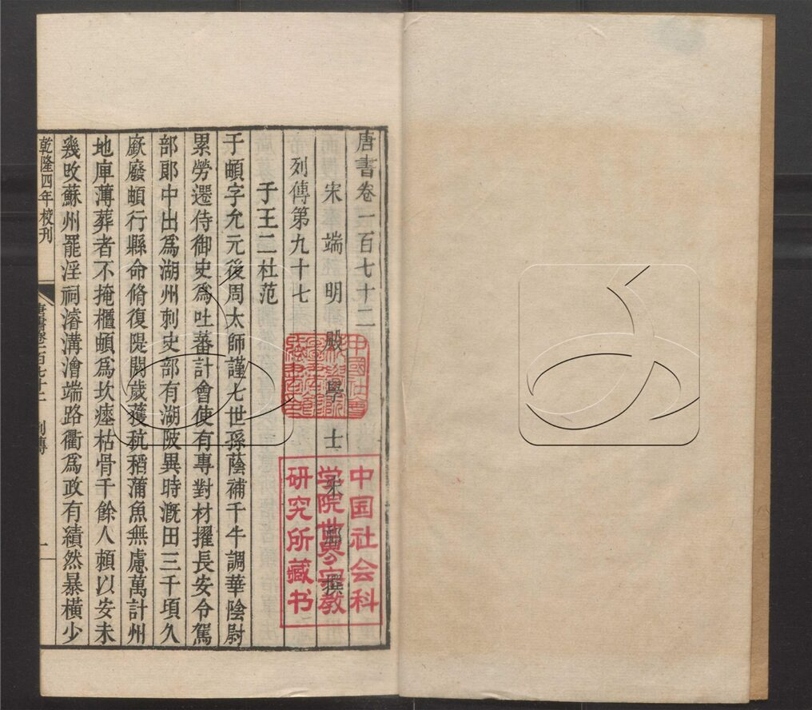 唐書卷一百七十二
宋端明殿學士宋祁撰
列傳第九十七
于王二杜范
于頔字允元後周太師謹七世孫蔭補千牛調華陰尉
累勞遷侍御史爲吐蕃計會使有專對材擢長安令駕
部郞中出爲湖州刺史部有湖陂異時漑田三千頃久
廞廢頔行縣命脩復隄閼歲獲秔稻蒲魚無慮萬計州
地庳薄葬者不掩櫃頔爲坎瘞枯骨千餘人賴以安未
幾改蘇州罷淫祠濬溝澮端路衢爲政有績然暴橫少
乾隆四年校刊
唐書卷一百七十二 列傳
一
中国社会科
学院世界宗教
研究所藏书